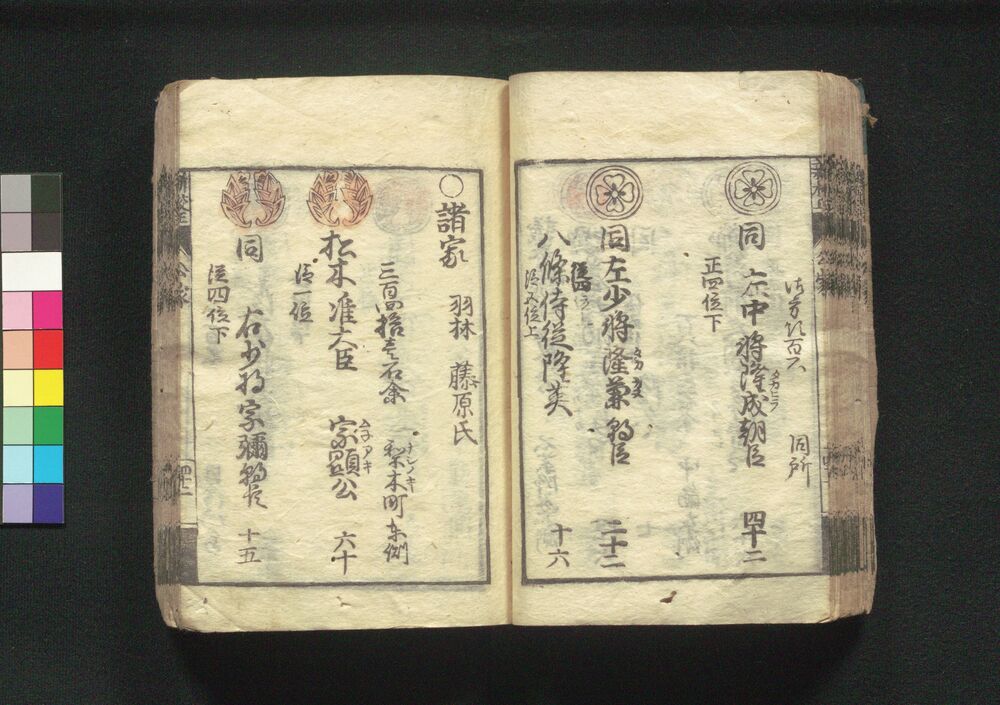 同所
正四位下
同 左中将隆成朝臣 四十二
タカヒラ
同 左少将隆兼朝臣 二十二
従四位下
従五位上
八條侍従隆英 十六
○諸家 羽林 藤原氏
三百四拾壱石余 梨木町東側
ナシノキ
松木准大臣 宗顕公 六十
ムネアキ
従一位
同 右少将宗彌朝臣 十五
従四位下
公家